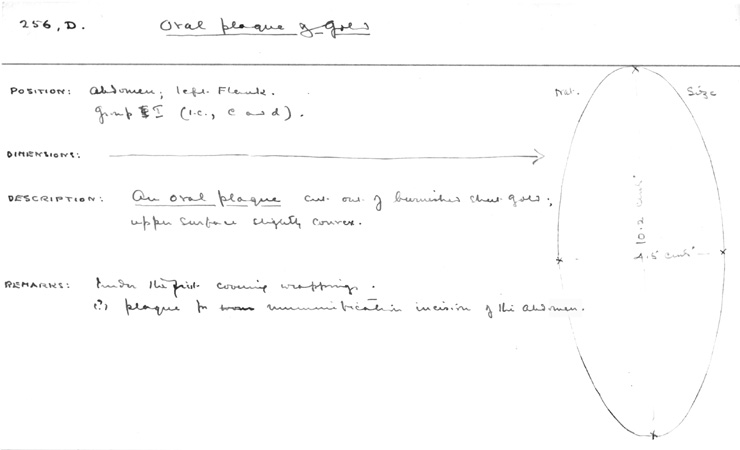 256, D. Oval plaque of gold
POSITION: Abdomen; left Flank.
Group I (i.e., c and d).
DIMENSIONS:
DESCRIPTION: An oval plaque cut out of burnished sheet gold;
upper surface slightly convex.
REMARKS: Under the first covering wrappings.
(?) plaque for mummification incision of the abdomen.
Nat. Size
10.2 cms
4.5 cms